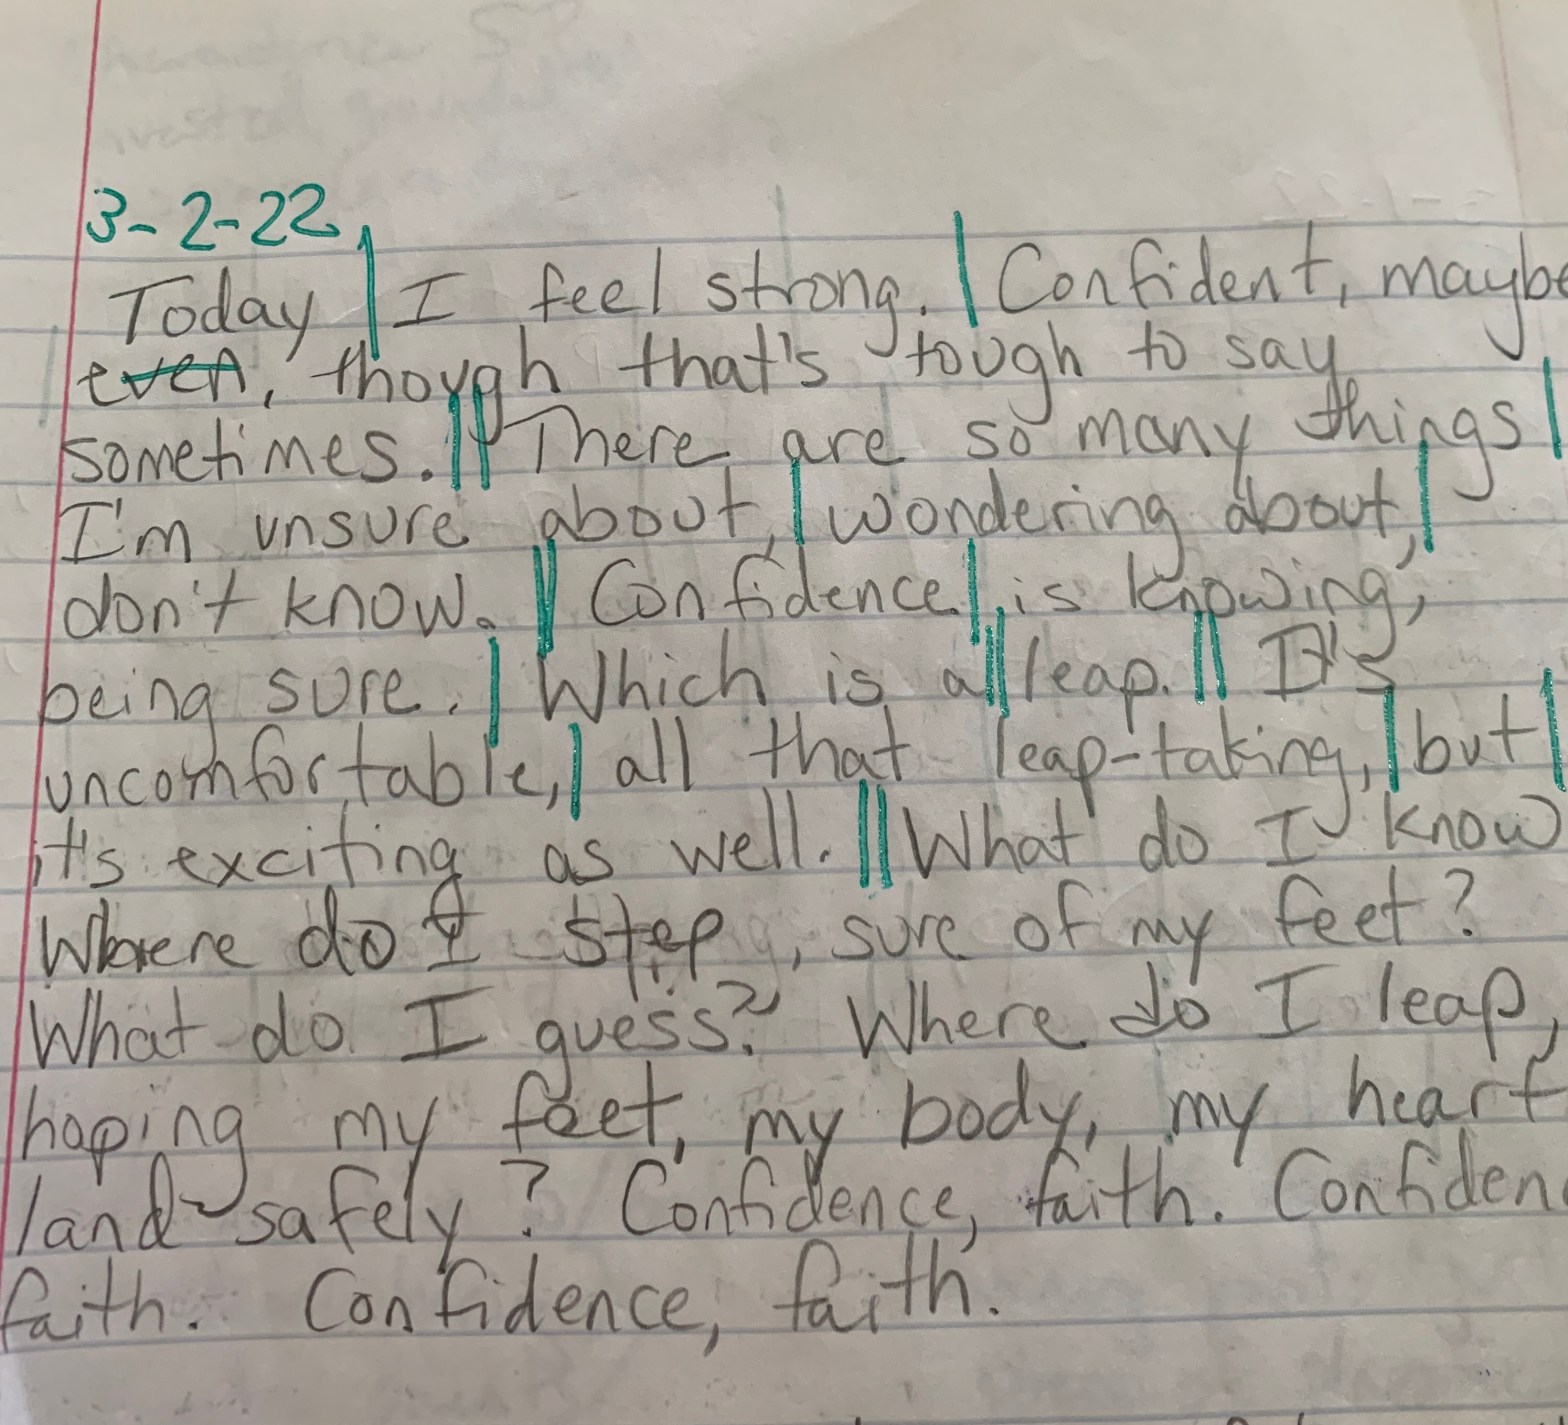 3-2-22
Today | I feel strong. | Confident, maybe
even, though that's tough to say
sometimes. || There are so many things |
I'm unsure about, | wondering about, |
don't know. || Confidence | is knowing,
being sure. | Which is a || leap. || It's
uncomfortable, | all that leap-taking, | but |
it's exciting as well. || What do I know
Where do I step, sure of my feet?
What do I guess? Where do I leap,
hoping my feet, my body, my heart
land safely? Confidence, faith. Confiden
faith. Confidence, faith.